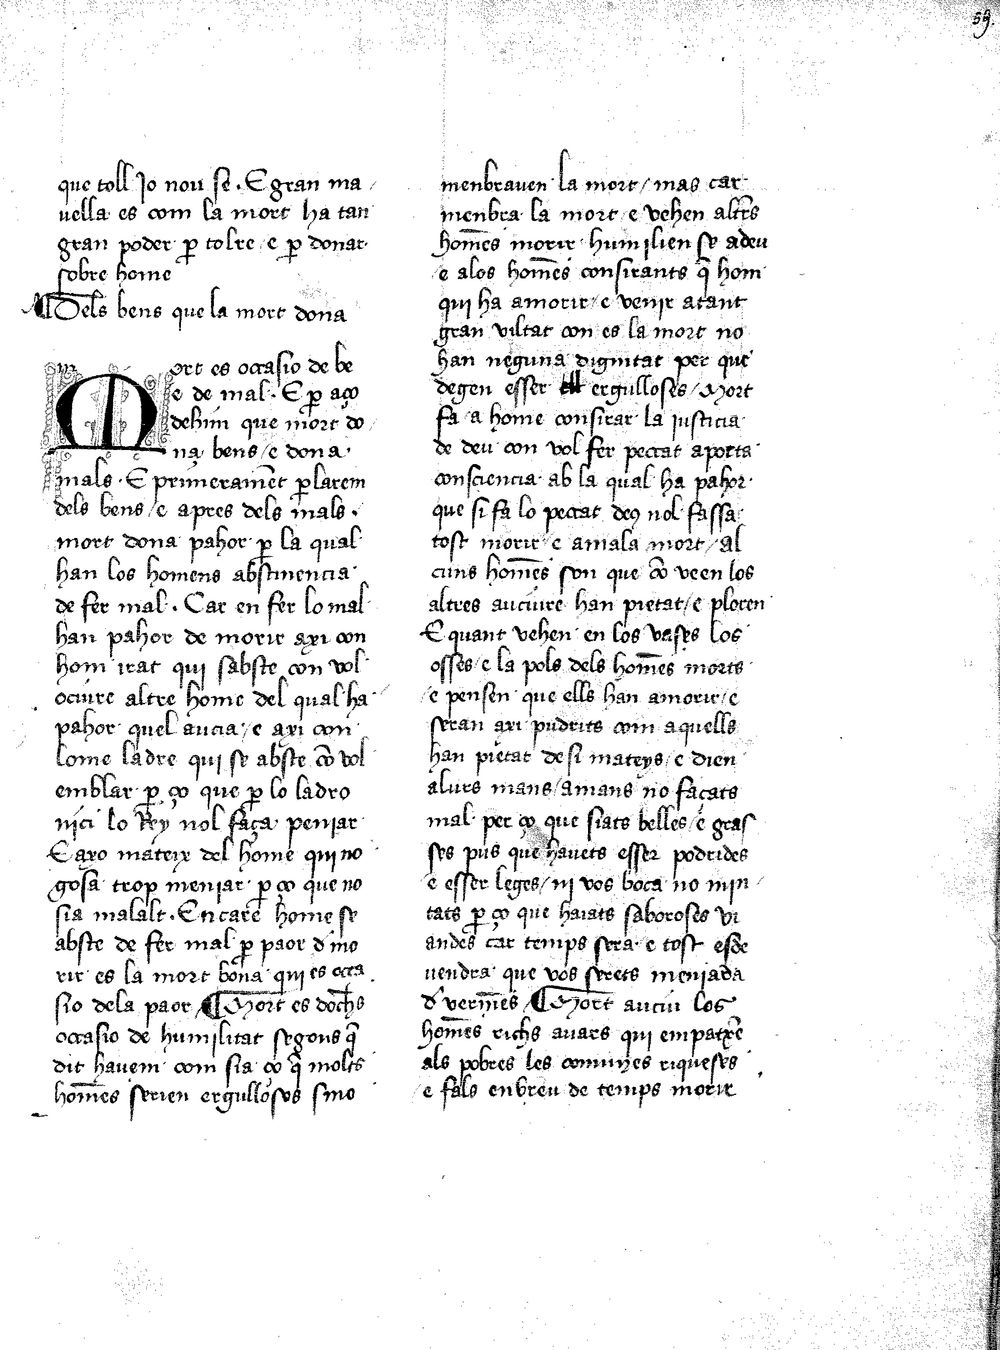 59.
que toll Jo nou se. E gran ma/
uella es com la mort ha tan
gran poder p̱ tolre / e p̱ donar
sobre home
¶ Dels bens que la mort dona
Mort es occasio de be
e de mal. E p̱ aço
dehim que mort do/
na bens / e dona
mals. E primeramēt p̱larem
dels bens / e apres dels mals.
mort dona pahor p̱ la qual
han los homens abstinencia
de fer mal. Car en fer lo mal
han pahor de morir axi con
hom irat qui sabste con vol
ociure altre home del qual ha
pahor quel aucia / e axi con
lome ladre qui se abste cō vol
emblar p̱ ço que p̱ lo ladro
nici lo Rey nol faça peniar
E axo mateix del home qui no
gosa trop meniar p̱ ço que no
sia malalt. Encare home se
abste de fer mal p̱ paor d' mo
rir es la mort bona qui es occa
sio dela paor ¶ Mort es dōchs
occasio de humilitat segons q̄
dit hauem com sia ço q̄ molts
homēs serien ergulloses sino
menbrauen la mort / mas car
menbra la mort e vehen altr̄s
homēs morir humilien se adeu
e alos homēs consirants q̄ hom
qui ha amorir / e venir atant
gran viltat con es la mort no
han neguna dignitat per que
degen esser ergulloses / Mort
fa a home consirar la justicia
de deu con vol fer peccat aporta
consciencia ab la qual ha pahor
que si fa lo peccat deꝯ nol fassa
tost morir e amala mort / al
cuns homēs son que cō veen los
altres auciure han pietat / e ploren
E quant vehen en los vases los
osses / e la pols dels homēs morts
e pensen que ells han amorir / e
seran axi pudrits com aquells
han pietat de si mateys / e dien
alurs mans / amans no façats
mal per ço que siats belles / e gras
ses pus que hauets esser podrides
e esser leges / ni vos boca no min/
tats p̱ ço que haiats saboroses vi
andes car temps sera e tost esde
uendra que vos serets meniada
d' vermēs ¶ Mort auciu los
homēs richs auars qui empatxē
als pobres les comunes riqueses
e fals enbreu de temps morir